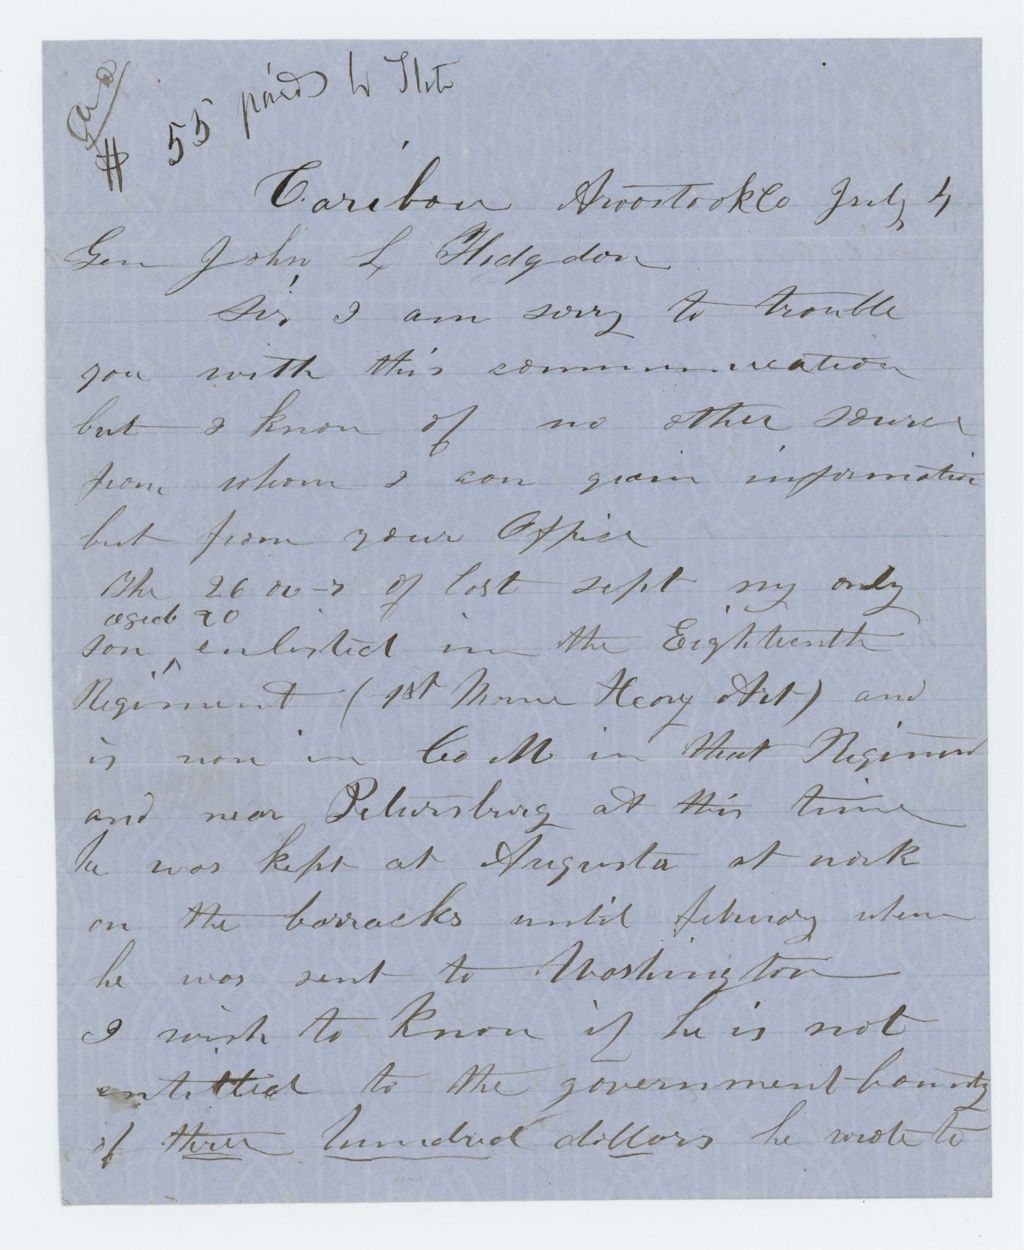 # 55 paid by State
Caribou Aroostook Co July 4
Gen John L Hodgdon
Sir I am sorry to trouble
you with this communication
but I know of no other source
from whom I can gain information
but from your Office
The 26 of last sept my only
aged 20
son ^ enlisted in the Eighteenth
Regiment (1st Maine Heavy Art) and
is now in Co M in that Regiment
and near Petersburg at this time
he was kept at Augusta at work
on the barracks until february when
he was sent to Washington
I wish to know if he is not
entitled to the government bounty
of three hundred dollars he wrote to